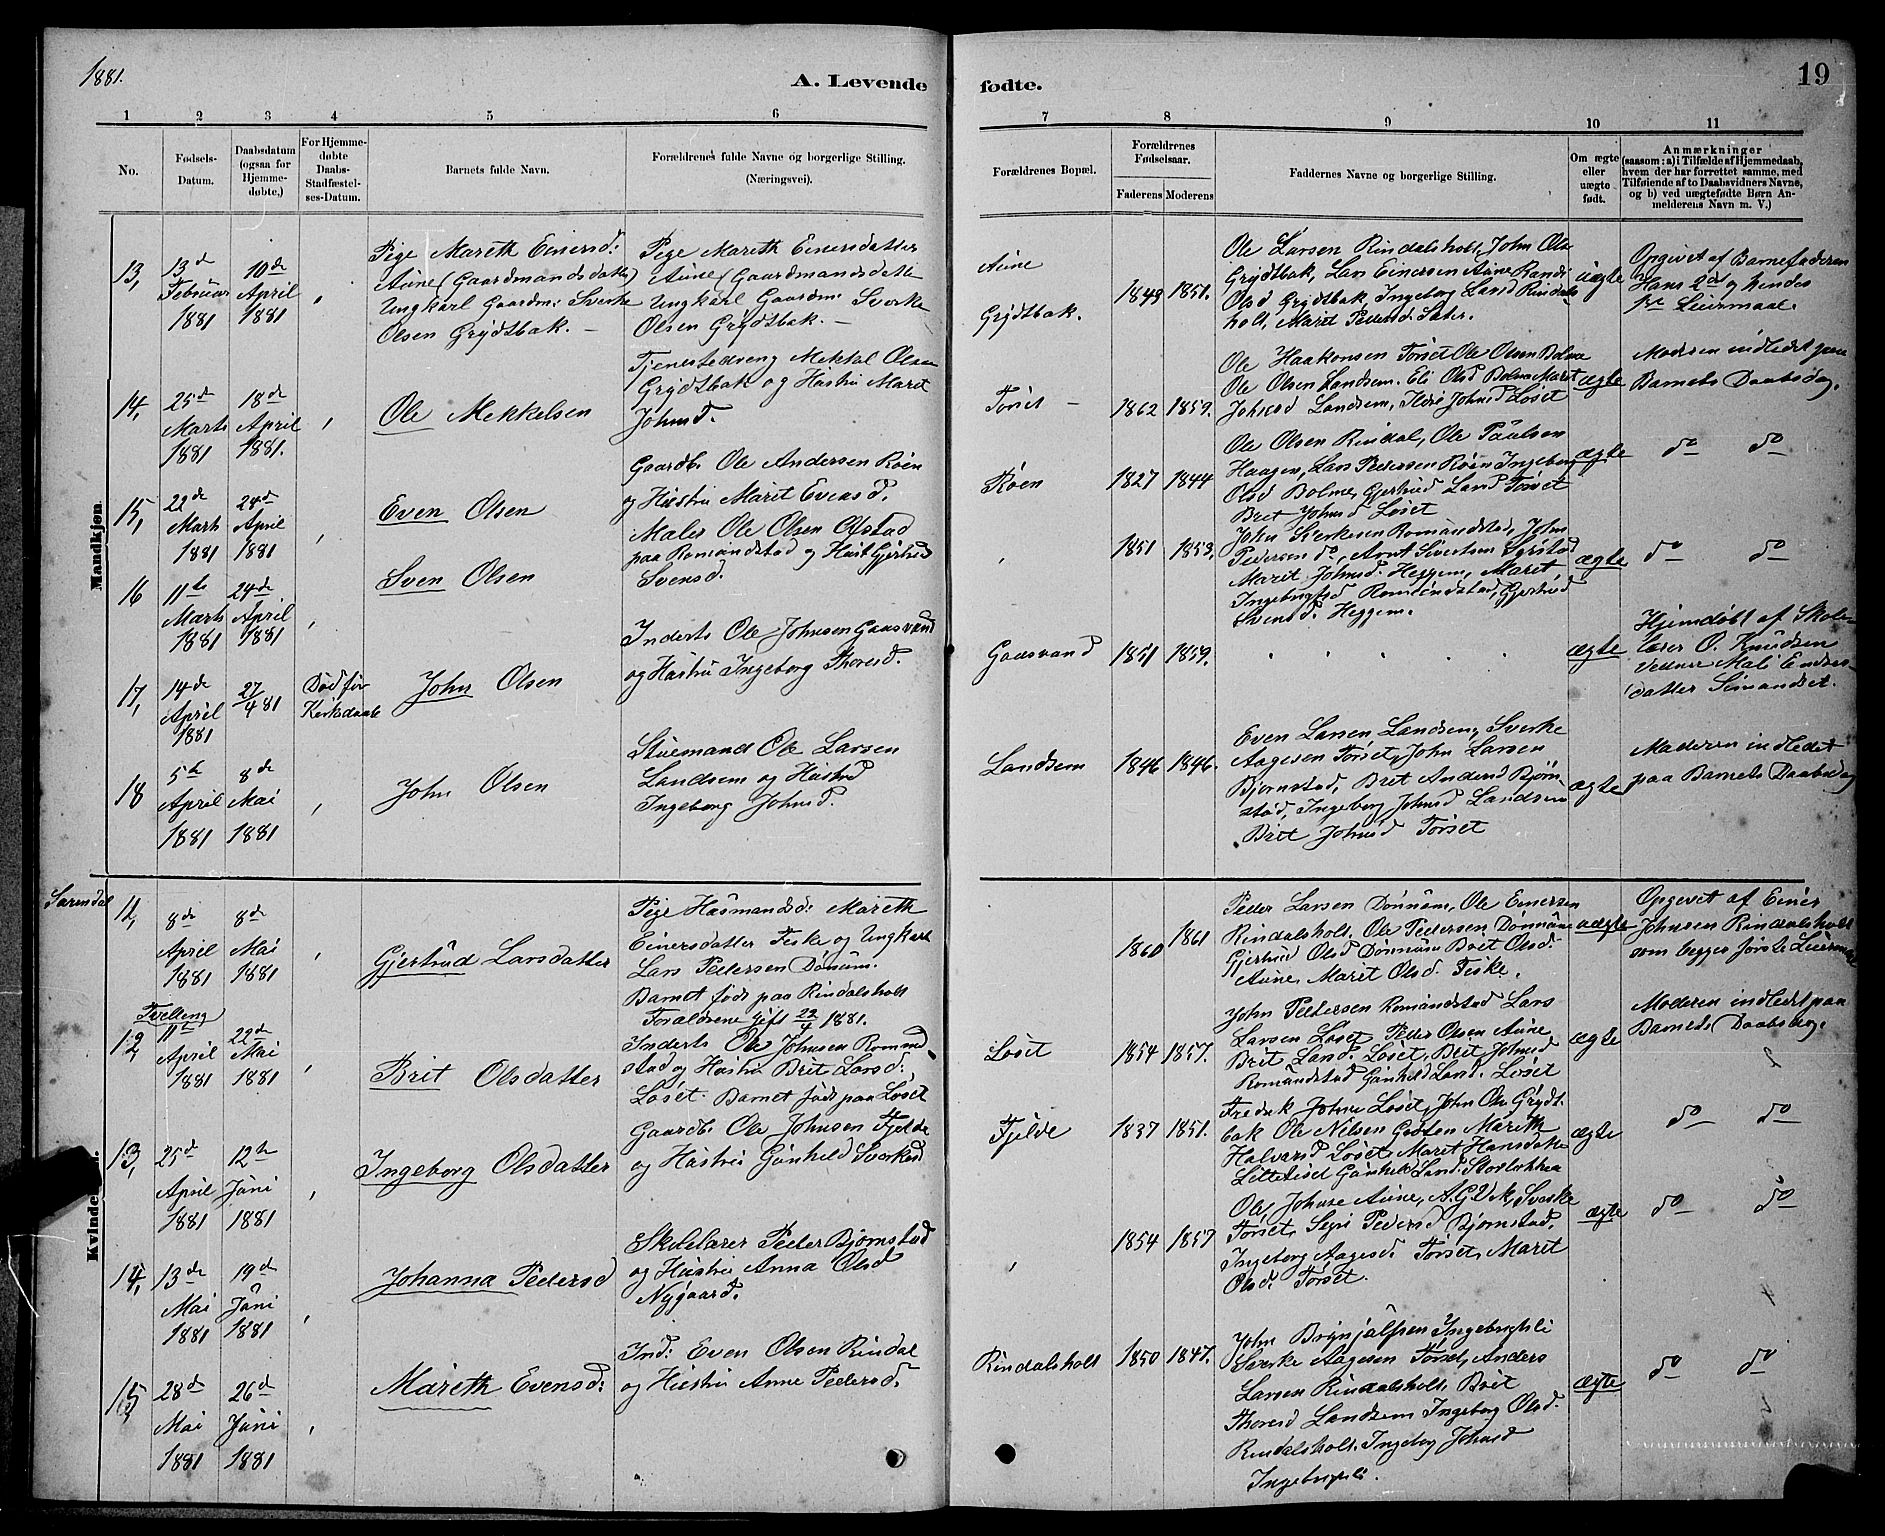 1881.
A. Levende
fødte.
19
1
2
3
4
5
6
7
8
9
10
11
No.
Fødsels-
Datum.
Daabsdatum
(ogsaa for
Hjemme-
døbte,)
For Hjemme-
døbte
Daabs-
Stadfæstel-
ses-Datum.
Barnets fulde Navn.
Forældrenes fulde Navne og borgerlige Stilling.
(Næringsvei).
Forældrenes Bopæl.
Forældrenes
Fødselsaar.
Faderens
Moderens
Faddernes Navne og borgerlige Stilling.
Om ægte
eller
uægte
født.
Anmærkninger
(saasom: a) i Tilfælde af Hjemmedaab,
hvem der har forrettet samme, med
Tilføiende af to Daabsvidners Navne,
og b) ved uægtefødte Børn An-
melderens Navn m. V.)
Mandkjøn
13,
13de
Februar
1881
10de
April
1881
Pige Mareth Einersd:
Aune (Gaardmandsdatter)
Ungkarl Gaardm: Sverke
Olsen Grÿdtbak. –
Pige Mareth Einersdatter
Aune (Gaardmandsdatte
Ungkarl Gaardm: Sverke
Olsen Grÿdtbak. –
Aune
Grÿdtbak.
1849
1851.
Ole Larsen Rindalsholt, John Ols
Grÿdtbak, Lars Einersen Aune Randi
Olsd Grÿdtbak, Ingeborg Larsd Rindals
holt, Marit Pedersd.
uægte
Opgivet af Barnefaderen
Hans 2d og hendes
1ste Leiermaal.
14,
25de
Marts
1881
18de
April
1881.
Ole Mekkelsen
Tjenestedreng Mekkel Olsen
Grÿdtbak og Hustru Marit
Johnsd.
Torset –
1862
1859.
Ole Haakonsen Torset, Ole Olsen Bolme
Ole Olsen Landsem. Eli Olsd Bolme Marit
Johnsd Landsem, Johnsd Løset
ægte
Moderen indledet paa
Barnets Daabsdag.
15,
22de
Marts
1881
24de
April
1881
Even Olsen
Gaardb. Ole Andersen Røen
og Hustru Marit Evensd.
Røen
1827
1844
Ole Olsen Rindal, Ole Paulsen
Haagen, Lars Pedersen Røen Ingeborg
Olsd Bolme, Gjertrud Larsd Torset
Bret Johnsd Løset
ægte
do do
16
11te
Marts
1881
24de
April
1881
Sven Olsen
Maler Ole Olsen Ofstad
paa Romundstad og Hust Gjertrud
Svensd.
1851
1853.
John Sverkesen Romundstad, John
Pedersen do, Arnt Sivertsen
Marit Johnsd. Heggem, Marit
Ingebrigtsd Romundstad, Gjertrud
Svensd. Heggem.
ægte
do do
17,
14de
April
1881
27/4 81
Død før
Kirkedaab
John Olsen
Inderts Ole Johnsen Gaasvand
og Hustru Ingeborg Thoresd.
Gaasvand
1851
1859.
ægte
Hjemdøbt af Skole
lærer O. Knudsen
Vidner Mali Endres-
datter Simandset.
18
5te
April
1881
8de
Mai
1881
John Olsen
Stuemand Ole Larsen
Landsem og Hustru
Ingeborg Johnsd.
Landsem
1846
1846.
Even Larsen Landsem, Sverke
Aagesen Torset, John Larsen
Bjørnstad, Bret Andersd Bjørn
stad, Ingeborg Johnsd Landsem
Brit Johnsd Torset
ægte
Moderen indledet
paa Barnets Daabsdag
Surendal
11,
8de
April
1881
8de
Mai
1881
Gjertrud Larsdatter
Pige Husmandsd: Mareth
Einersdatter Fiske og Ungkarl
Lars Pedersen Dønum.
Barnet født paa Rindalsholt
Foraldrene gift 22/4 1881.
1860
1861
Peder Larsen Dønnum, Ole Einersen
Rindalsholt, Ole Pedersen Dønnum
Gjertrud Olsd Dønnum Bret Olsd.
Aune, Marit Olsd. Fiske.
uægte
Opgivet af Einer
Johnsen Rindalsholt
som begges første Leiermaal
Tvilling
12,
11te
April
1881
22de
Mai
1881
Brit Olsdatter
Inderts Ole Johnsen Romund
stad og Hustru Brit Larsd:
Løset. Barnet født paa Løset
Løset
1854
1857.
John Pedersen Romundstad Lars
Larsen Løset Peder Olsen Aune
Brit Larsd. Løset, Brit Johnsd
Romundstad Gunhild Larsd. Løset
ægte
Moderen indledet paa
Barnets Daabsdag.
Kvindekjøn.
13,
25de
April
1881
12te
Juni
1881
Ingeborg Olsdatter
Gaardb. Ole Johnsen Fjelde
og Hustru Gunhild Sverkesd
Fjelde
1837
1851.
Fredrik Johns Løset, John Ols Grÿdt-
bak Ole Nilsen Marith
Halvarsd Løset, Maret Hansdatter
Lilleløset Gunhild Larsd. Storløkken
ægte
do do
14,
13de
Mai
1881
19de
Juni
1881
Johanna Pedersd
Skolelærer Peder Bjørnstad
og Hustru Anna Olsd
Nygaard.
1854
1857
Ole Johnse Aune, Sverke
Torset, Segri Pedersd Bjørnstad,
Ingeborg Aagesd. Torset, Marit
Olsd. Torset.
ægte
do do
15
28de
Mai
1881
26de
Juni
1881
Mareth Evensd:
Ind: Even Olsen Rindal
og Hustru Anne Pedersd.
Rindalsholt
1850
1847.
John Brynjulfsen Ingebrigtsli
Sverke Aagesen Torset, Anders
Larsen Rindalsholt Brit
Thoresd Landsem Ingeborg Olsd.
Rindalsholt. Ingeborg Johnsd
Ingebrigtsli.
ægte
do do